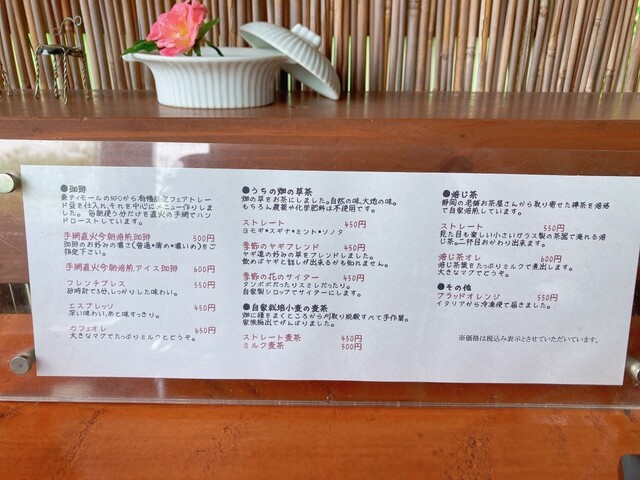 ●珈琲
東ティモールのNPOから有機認定フェアトレー
ド豆を仕入れ、それを中心にメニュー作りしま
した。 毎朝使う分だけを直火の手網でハン
ドローストしています。
手網直火今朝焙煎珈琲 500円
珈琲のお好みの濃さ(普通*薄め*濃いめ)をご
指定下さい。
手網直火今朝焙煎アイス珈琲 600円
フレンチプレス 550円
砂時計で3分、しっかりした味わい。
エスプレッソ 450円
深い味わい、あと味すっきり。
カフェオレ 650円
大きなマグでたっぷりミルクとどうぞ。
●うちの畑の草茶
畑の草をお茶にしました。自然の味、大地の味。
もちろん農薬や化学肥料は不使用です。
ストレート 450円
ヨモギ*スギナ*ミント*ソノタ
季節のヤギブレンド 450円
ヤギ達の好みの草をブレンドしました。
飲めばヤギと話しが出来るかも知れません。
季節の花のサイダー 450円
タンポポだったりスミレだったり。
自家製シロップでサイダーにします。
●自家栽培小麦の麦茶
畑に種をまくところから刈取り脱穀すべて手作業。
家族総出でがんばりました。
ストレート麦茶 450円
ミルク麦茶 500円
●焙じ茶
静岡の老舗お茶屋さんから取り寄せた棒茶を焙烙
で自家焙煎しています。
ストレート 550円
見た目も楽しい小さいガラス製の茶器で淹れる焙
じ茶。二杯目おかわり出来ます。
焙じ茶オレ 600円
焙じ茶葉をたっぷりミルクで煮出します。
大きなマグでどうぞ。
●その他
ブラッドオレンジ 550円
イタリアから冷凍便で届きました。
※価格は税込み表示とさせていただいています。